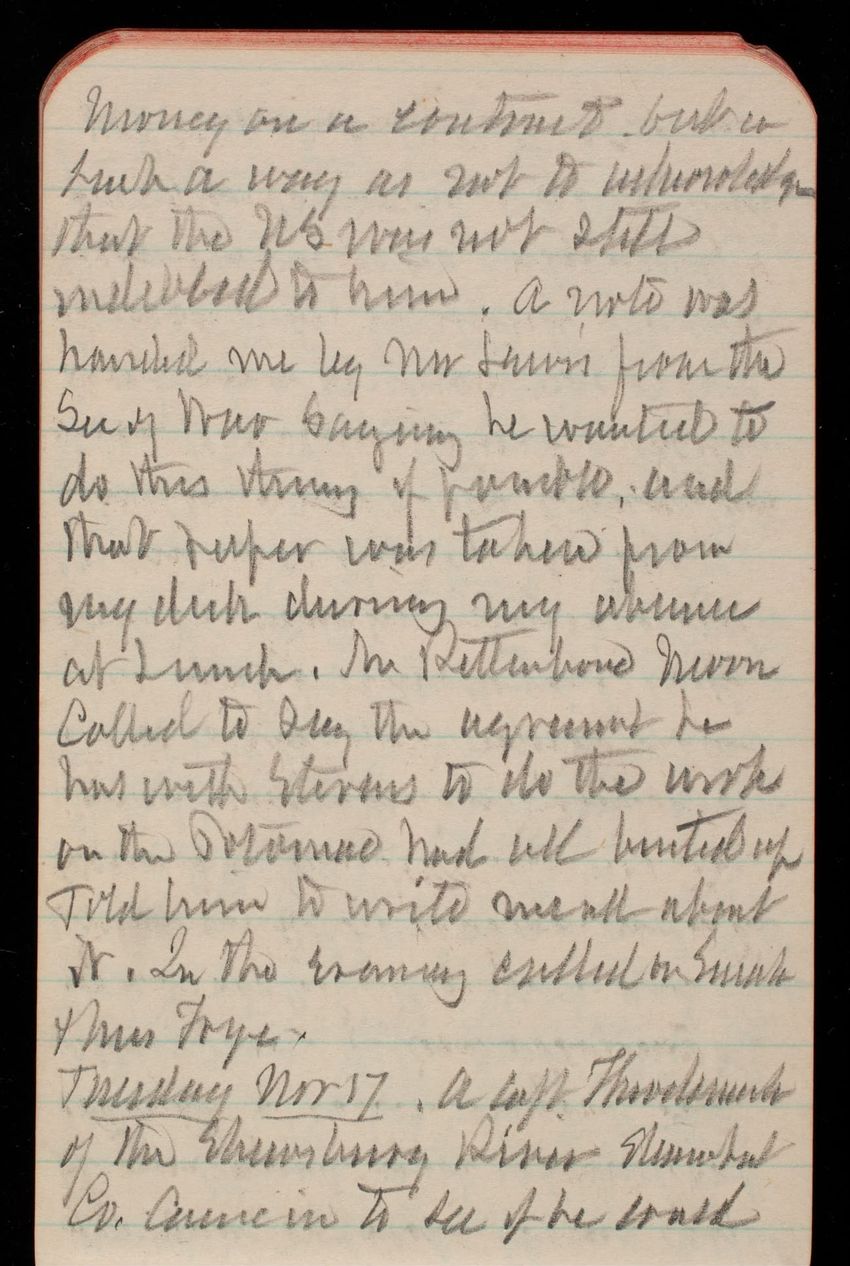 Money on a contract but in
such a way as not to acknowledge
that the US was not still
indebted to him. A note was
handed me by Mr from the
Sec of War saying he wanted to
do this thing if possible, and
that paper was taken from
my desk during my absence
at Lunch. Mr Nixon
Called to say the agreement he
has with Stevens to do the work
on the Potomac had all busted up
Told him to write me all about
it. In the evening called on Sarah
& Miss Frye.
Tuesday Nov 17. A Capt.
of the Shrewsbury River Steamboat
Co. Came in to see if he could